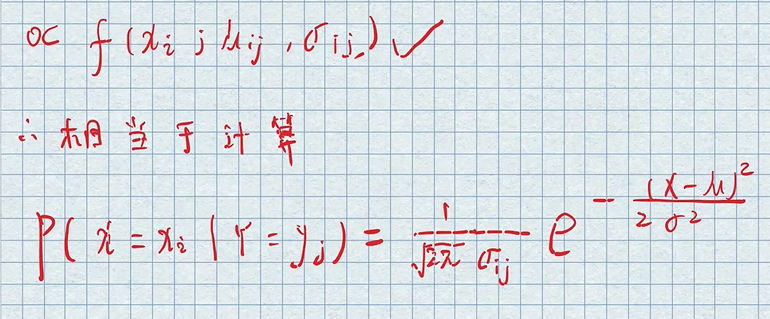 ∝ f(xᵢ; μᵢⱼ, σᵢⱼ) ✓
∴ 相当于计算
P(x = xᵢ | Y = yⱼ) = 1/(√2π σᵢⱼ) e^(-(x-μ)²/2σ²)